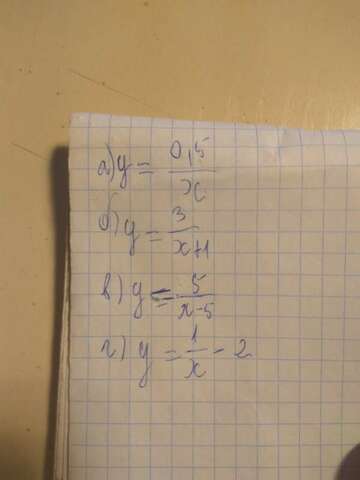 а) y = 0,5/x
б) y = 3/x+1
в) y = 5/x-5
г) y = 1/x - 2